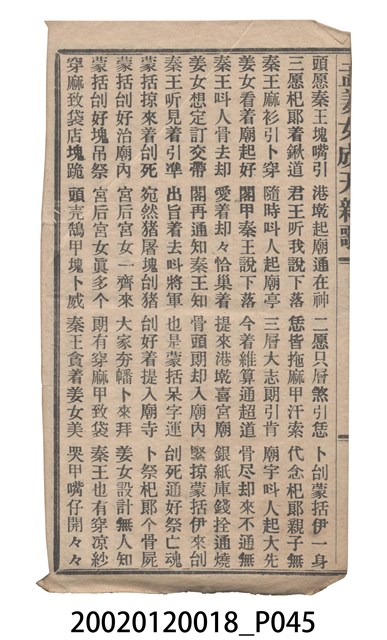 孟姜女配夫新歌
頭愿秦王塊嘴引 港墘起廟通在神 二愿只屑煞引恁 卜刣蒙括伊一身
三愿杞郎着鍬道 君王听我說下落 恁皆拖麻甲汗索 代念杞郎親子無
秦王麻衫引卜穿 隨時叫人起廟亭 三層大志朗引肯 廟字叫人起大先
姜女看着廟起好 閣甲秦王說下落 今着維算通超道 骨尽却來不通無
秦王叫人骨去却 愛着却々恰巢着 提來港墘喜宮廟 銀紙庫錢拴通燒
姜女想定訂交帶 閣再通知秦王知 骨頭朗却入廟內 緊掠蒙括伊來刣
秦王听見着引準 出旨着去叫將軍 也是蒙括呆字運 刣死通好祭亡魂
蒙括掠來着刣死 宛然猪屠塊刣猪 刣好着提入廟寺 卜祭杞郎个骨屍
蒙括刣好治廟內 宮后宮女一齊來 大家夯幡卜來拜 姜女設計無人知
蒙括刣好塊吊祭 宮后宮女眞多个 朗有穿麻甲致袋 秦王也有穿凉紗
穿麻致袋店塊跪 頭壳鵠甲塊卜威 秦王貪着姜女美 哭甲嘴仔開々々
20020120018_P045